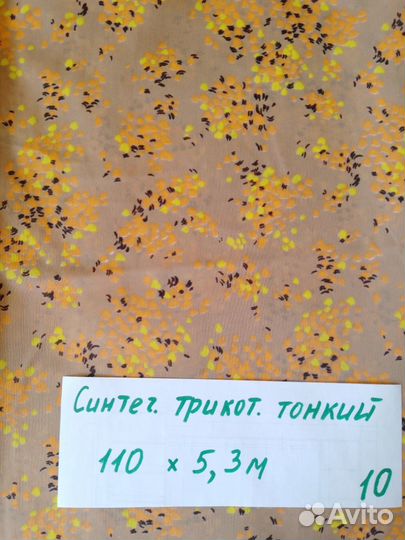 Синтет. трикот. тонкий
110 х 5,3м
10
Avito